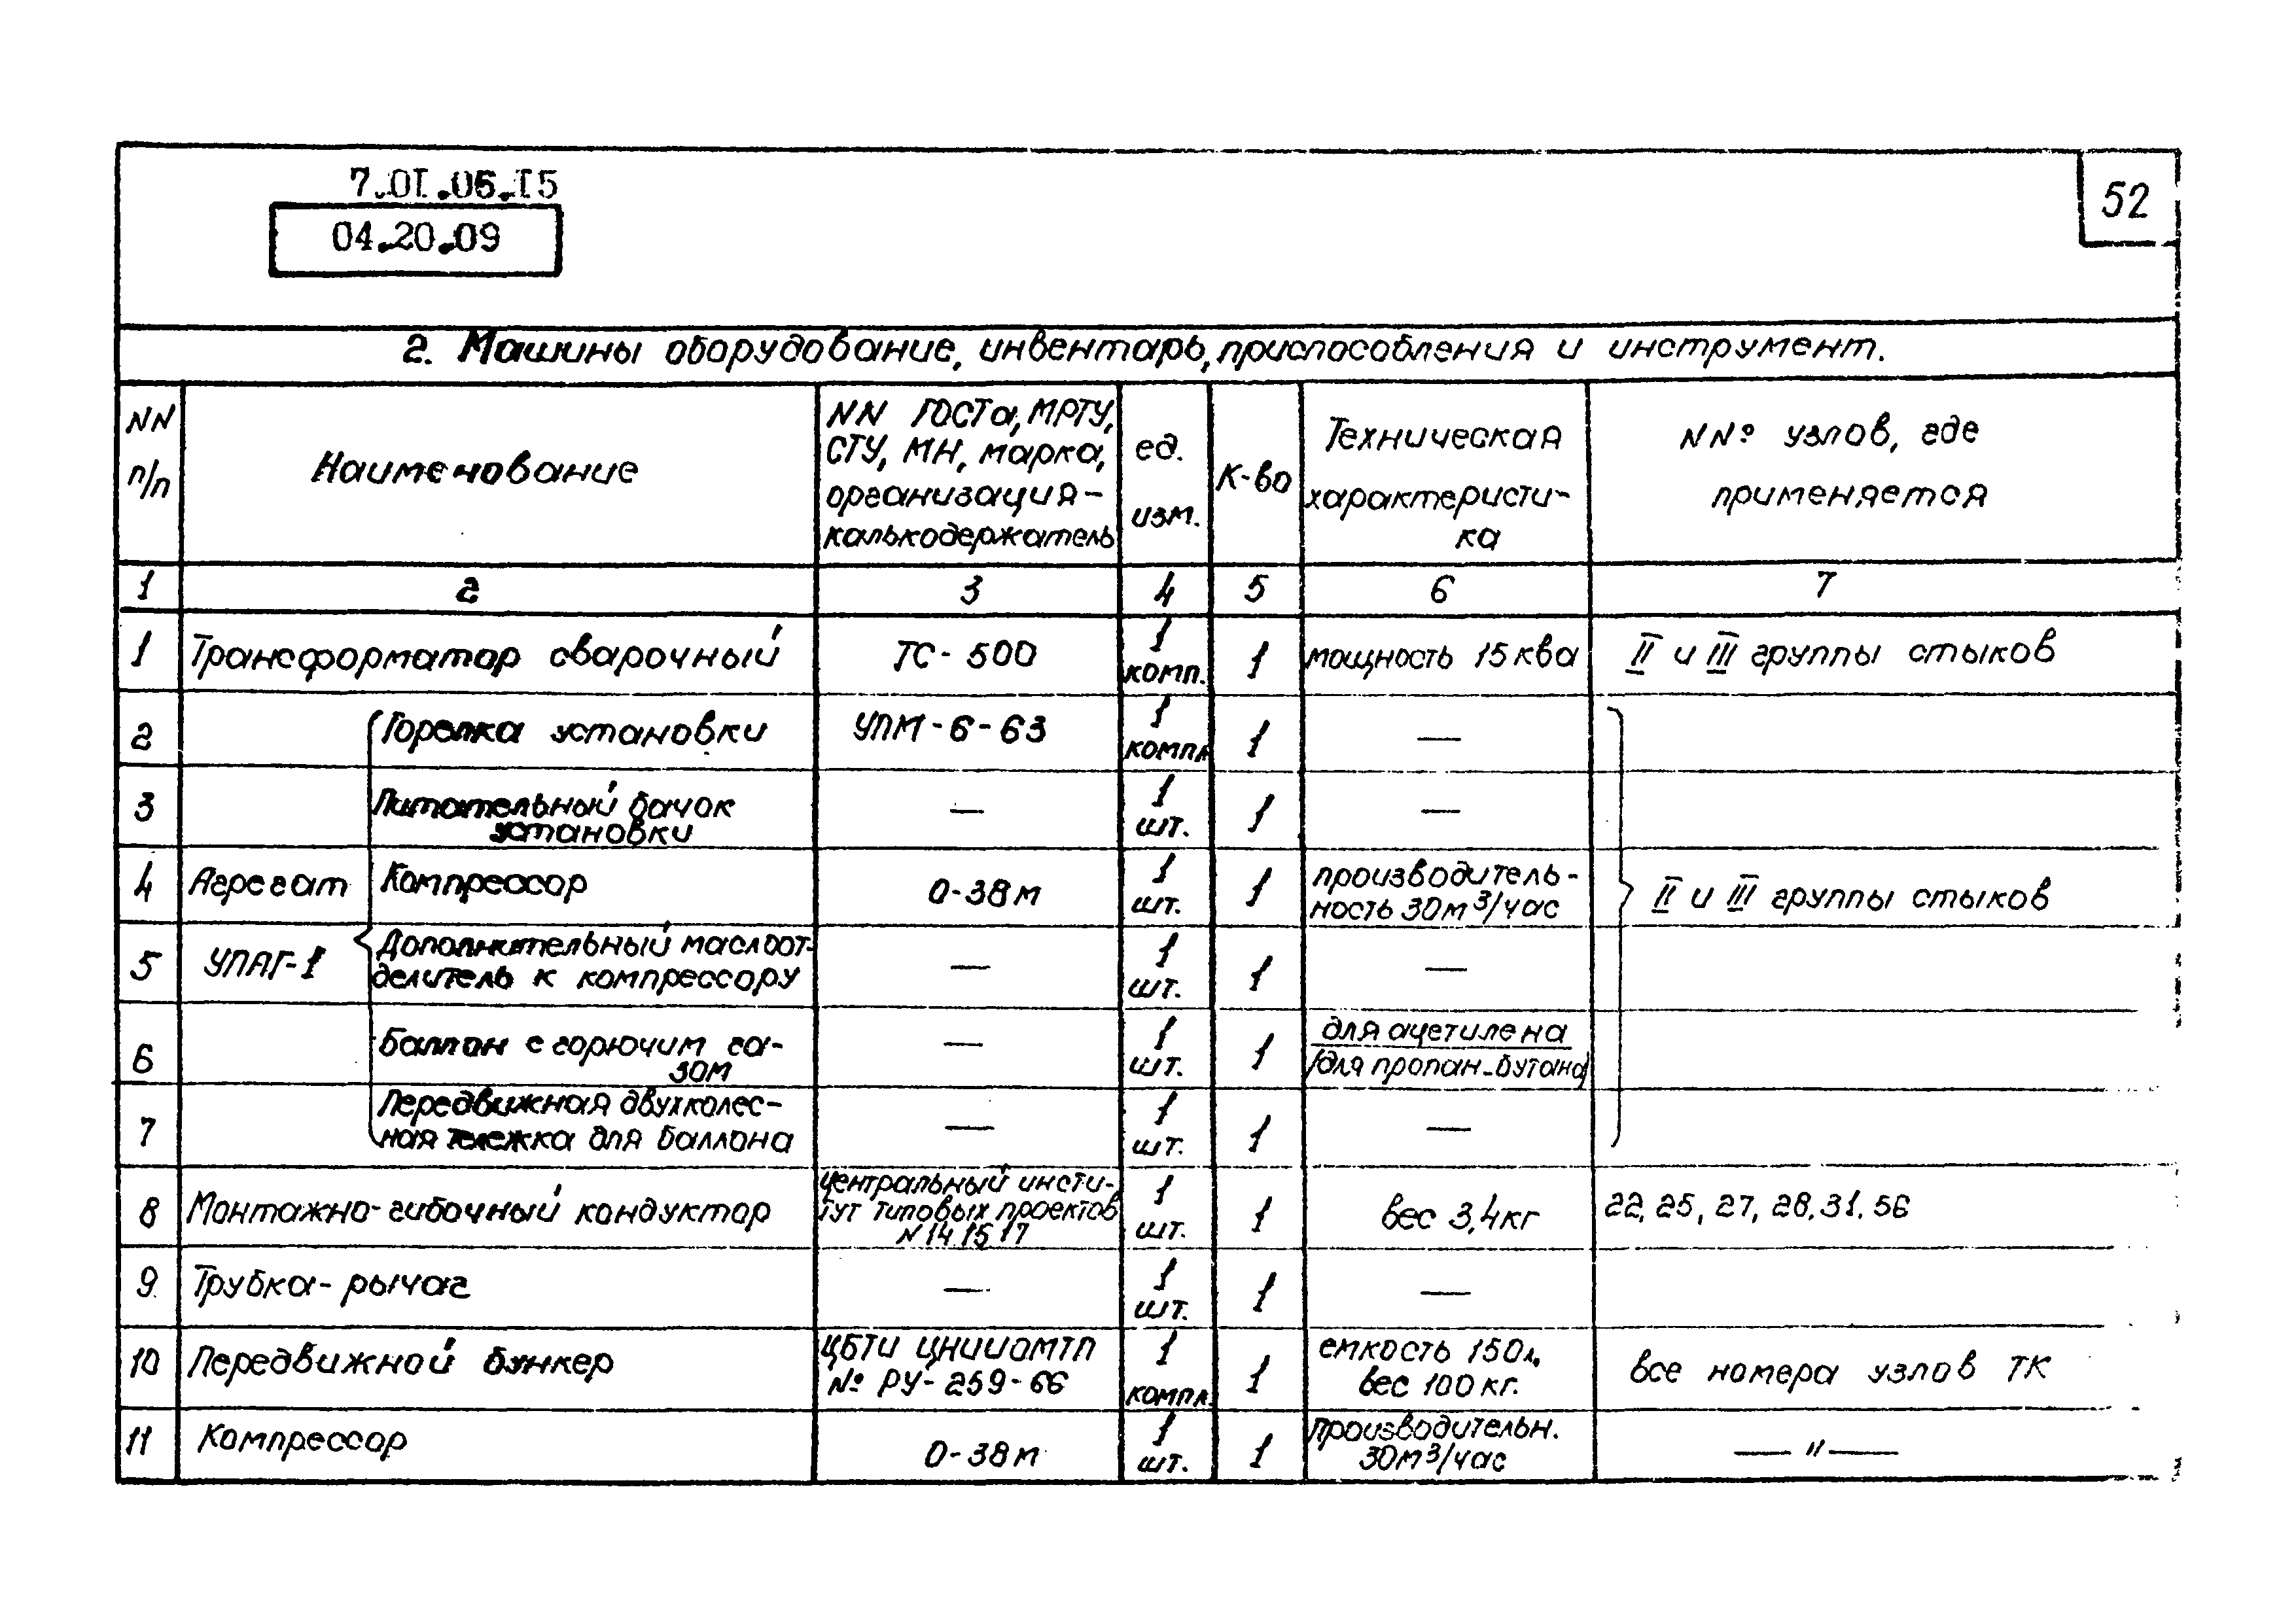 7.01.06.15
52
04.20.09
2. Машины оборудование, инвентарь, приспособления и инструмент.
NN п/п
Наименование
NN ГОСТа, МРТУ,
СТУ, МН, марка,
организация-
калькодержатель
ед.
изм.
К-во
Техническая
характеристи-
ка
NNº узлов, где
применяется
1 2 3 4 5 6 7
1 Трансформатор сварочный ТС-500 1 комп. 1 мощность 15 ква II и III группы стыков
Агрегат
УПАГ-1
2 Горелка установки УПМ-6-63 1 компл 1 —
3 Питательный бачок
установки — 1 шт. 1 —
4 Компрессор О-38м 1 шт. 1 производитель-
ность 30м³/час
II и III группы стыков
5 Дополнительный маслоот-
делитель к компрессору — 1 шт. 1 —
6 Баллон с горючим га-
зом — 1 шт. 1 для ацетилена
/для пропан-бутана/
7 Передвижная двухколес-
ная тележка для баллона — 1 шт. 1 —
8 Монтажно-гибочный кондуктор
центральный инсти-
тут типовых проектов
N 14, 15, 17
1 шт. 1 вес 3,4кг 22, 25, 27, 28, 31, 56
9 Трубка-рычаг — 1 шт. 1 —
10 Передвижной бункер
ЦБТИ ЦНИИОМТП
№ РУ-259-66
1 компл. 1
емкость 150л,
вес 100 кг.
все номера узлов ТК
11 Компрессор О-38м 1 шт. 1
производительн.
30м³/час
— " —